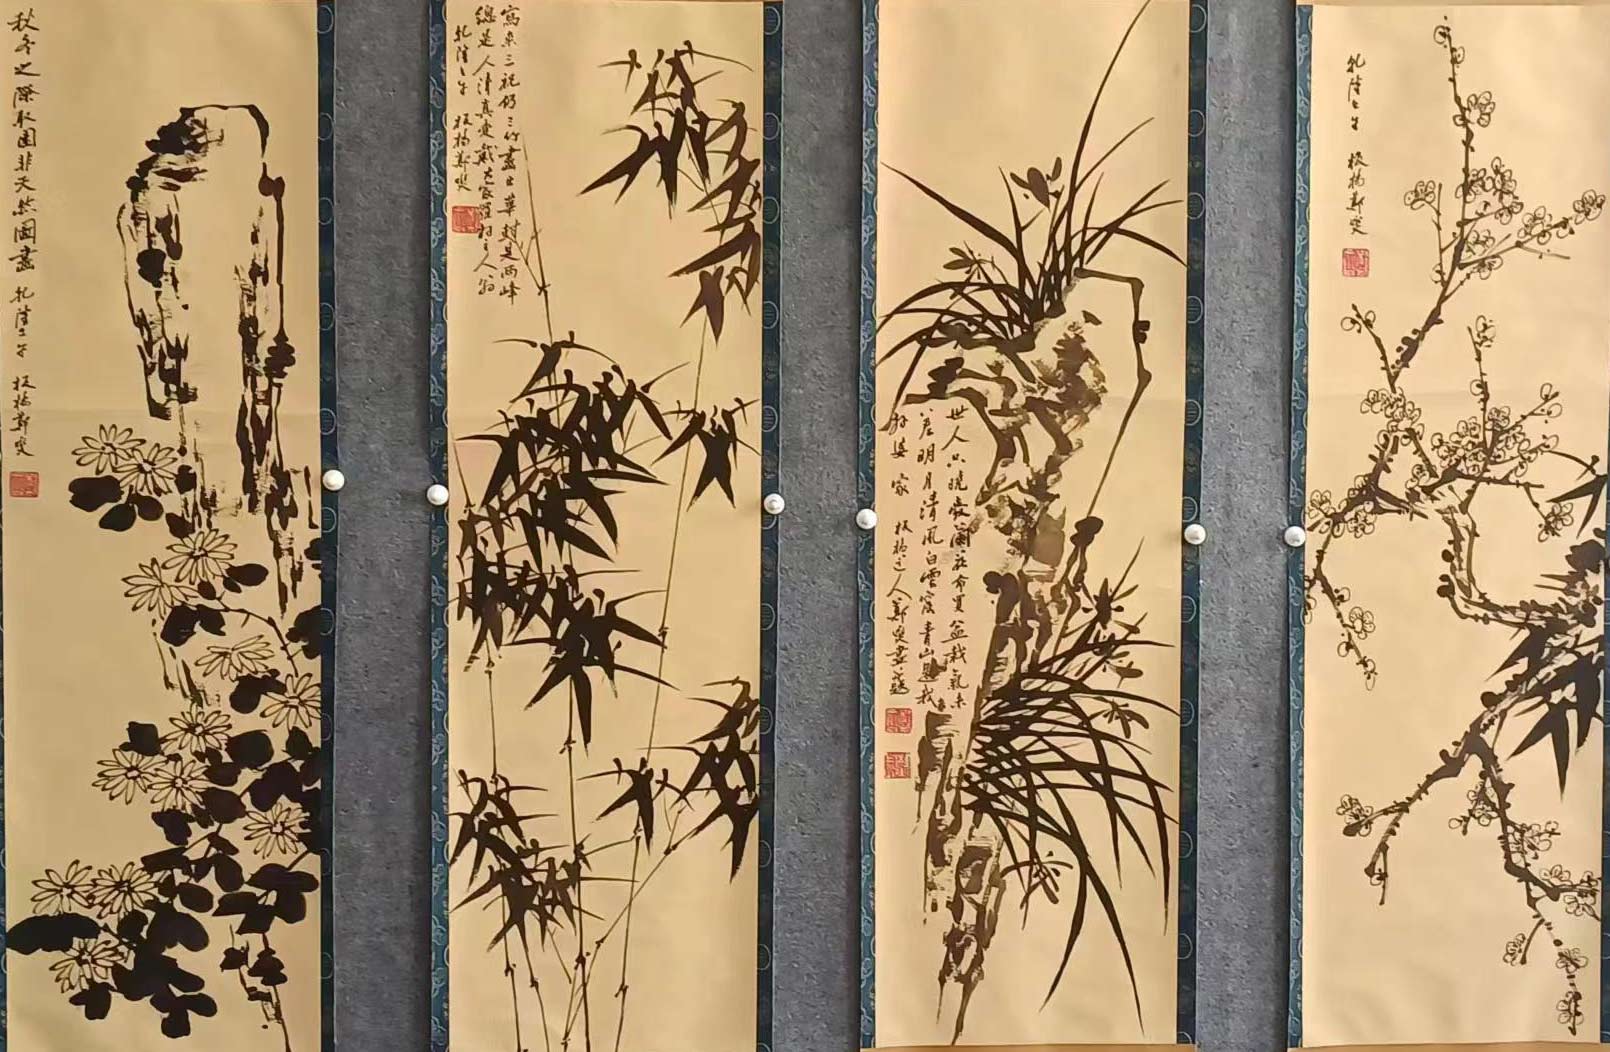 秋冬之際取園非天然圖畫 乾隆壬午 板橋鄭燮
寫來三祝仍三竹畫出華封是兩峰
總是人情真愛戴大家羅拜主人翁
乾隆壬午 板橋鄭燮
世人只曉愛蘭花市買盆栽氣味
差明月清風白雲窟青山是我
外婆家 板橋道人鄭燮畫並題
乾隆壬午 板橋鄭燮